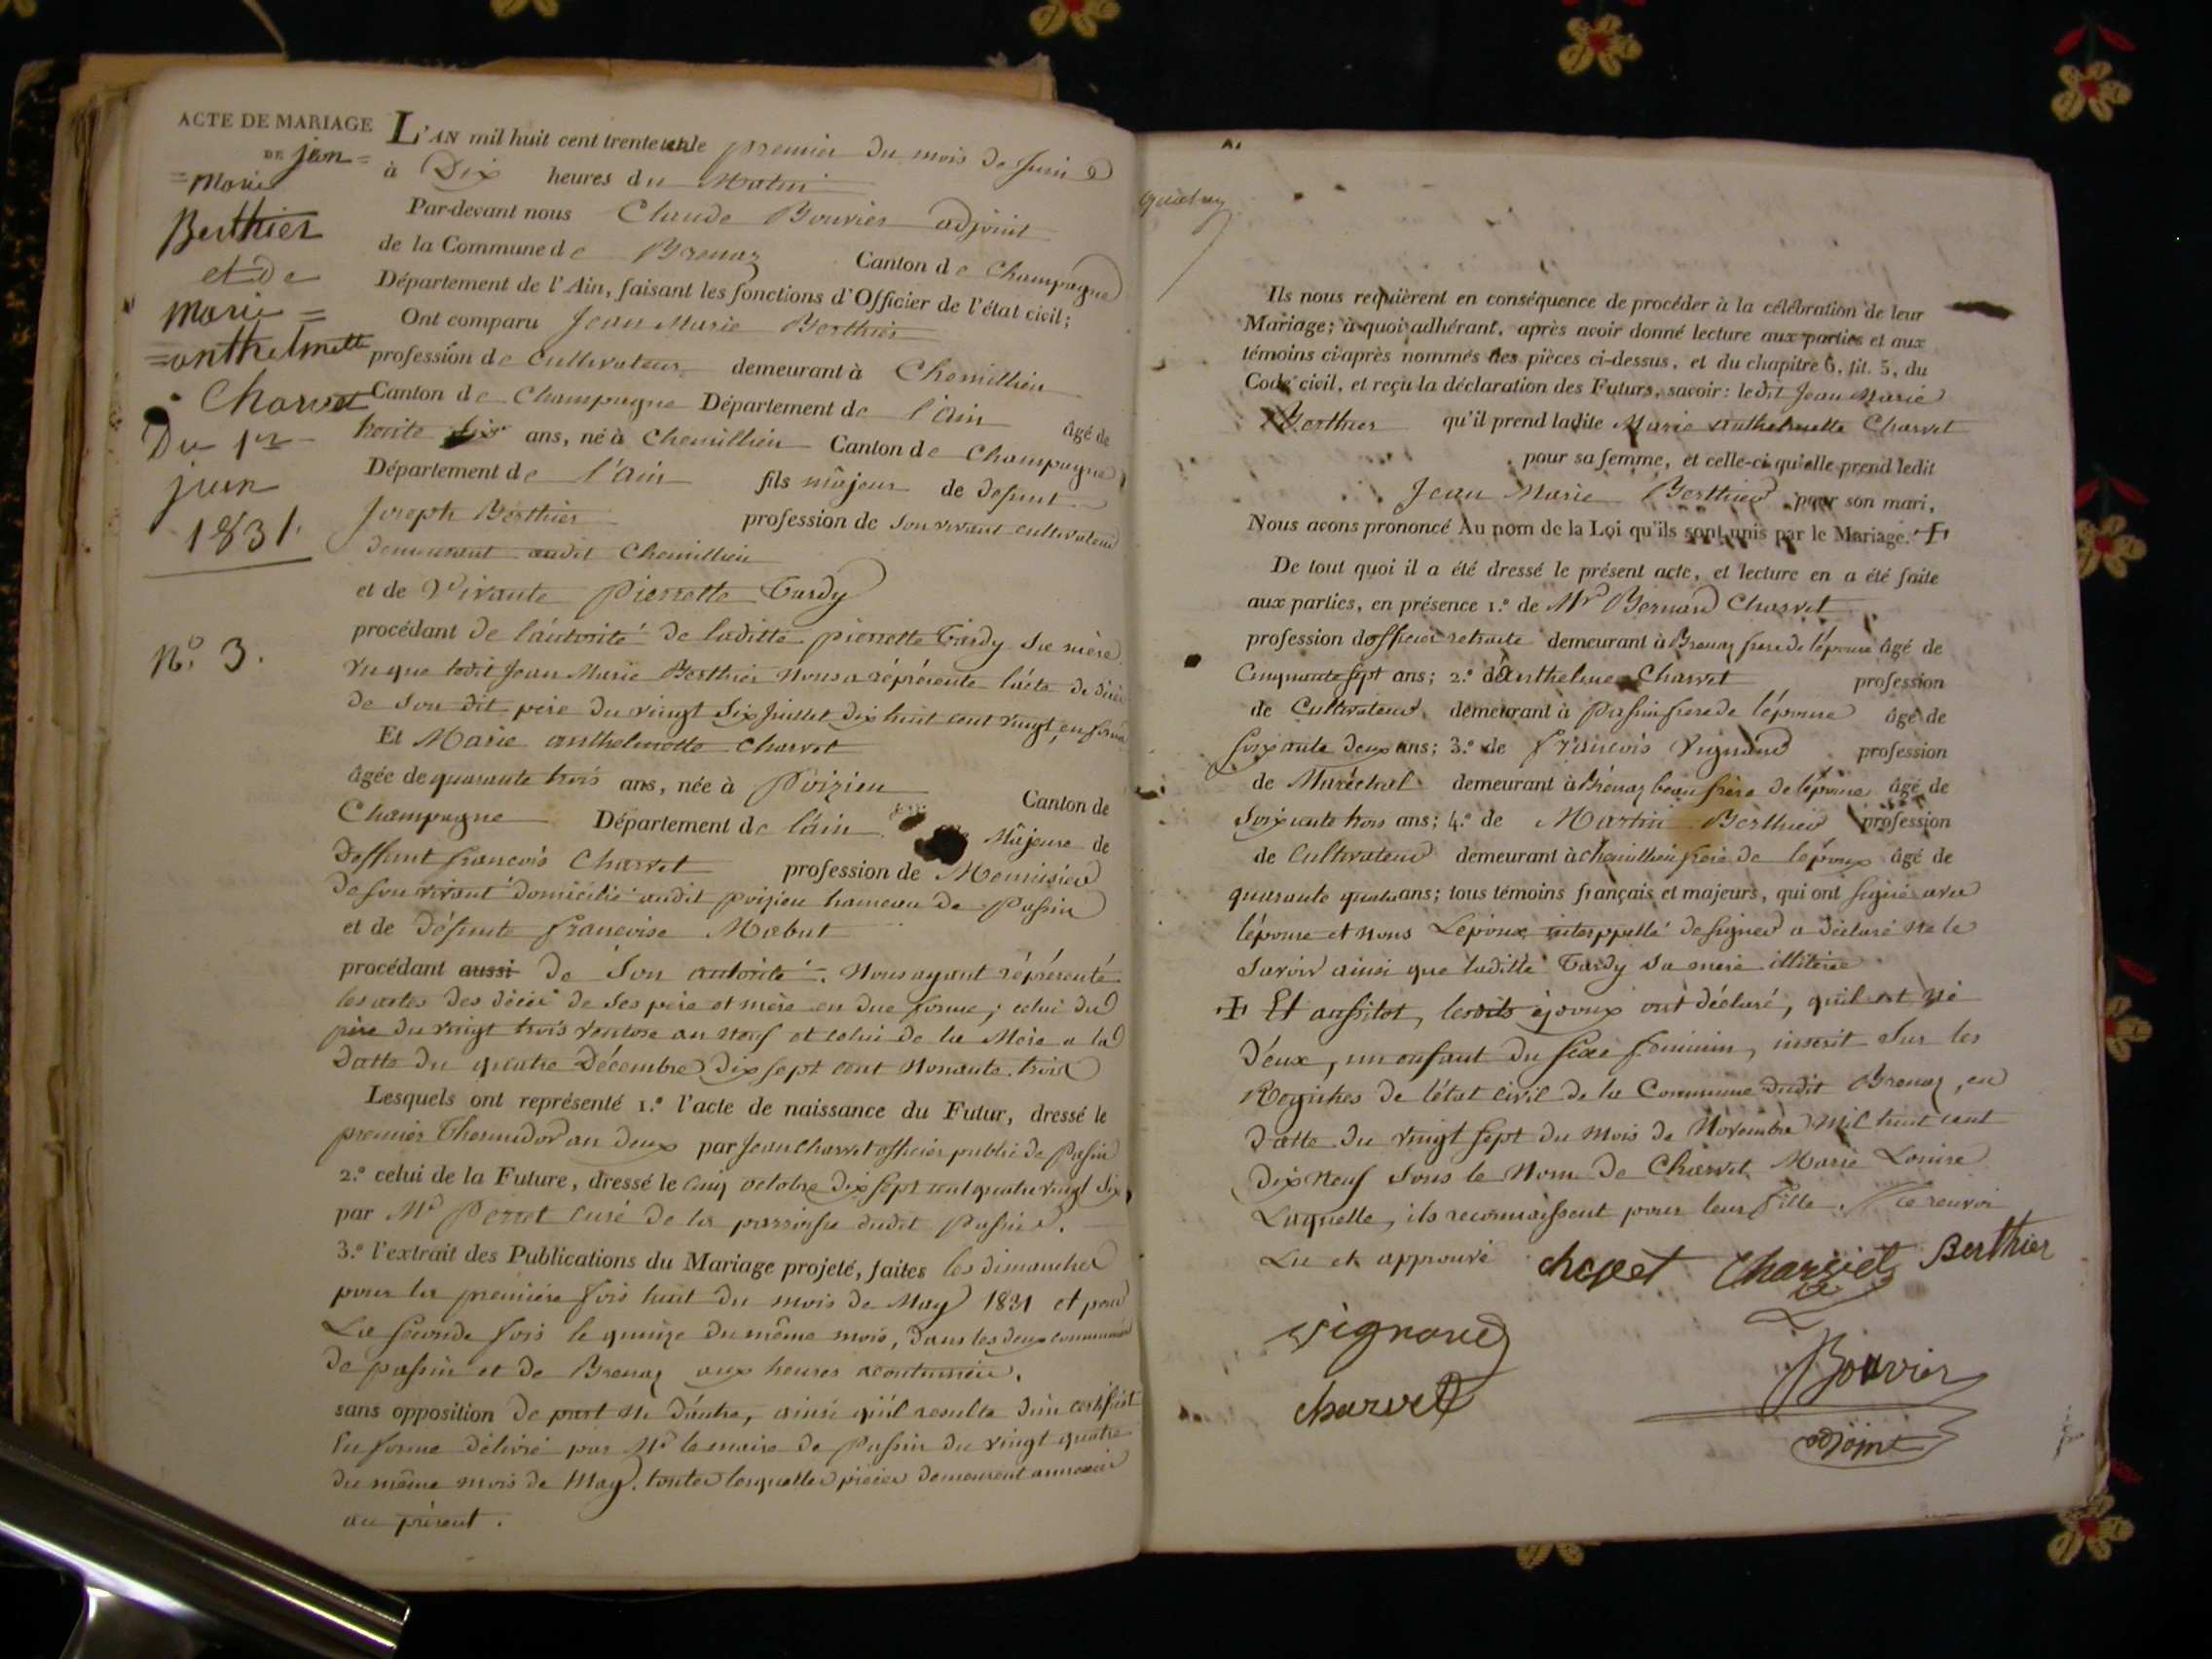 ACTE DE MARIAGE
DE jean =
= marie
Berthier
et de
marie =
= anthelmette
Charvet
Du 1er
juin
1831.
N.o 3.
L'AN mil huit cent trente un le premier du mois de Juin
à Dix heures du Matin
Par-devant nous Claude Bouvier adjoint
de la Commune de Brenaz Canton de Champagne
Département de l'Ain, faisant les fonctions d'Officier de l'état civil;
Ont comparu Jean Marie Berthier
profession de Cultivateur demeurant à Chemillieu
Canton de Champagne Département de l'ain âgé de
trente six ans, né à Chemillieu Canton de Champagne
Département de l'ain fils majeur de defunt
Joseph Berthier profession de Son vivant cultivateur
demeurant audit Chemillieu
et de Vivante Pierrette Tardy
procédant de l'autorité de laditte pierrette Tardy Sa mère
vu que ledit Jean Marie Berthier Nous a réprésenté l'acte de décè
de Son dit père du vingt Six Juillet dix huit cent vingt, en forme
Et Marie anthelmette Charvet
âgée de quarante trois ans, née à Poizieu Canton de
Champagne Département de l'ain Majeure de
deffunt francois Charvet profession de Menuisier
de Son vivant domicilié audit poizieu hameau de Passin
et de défunte francoise Mabut
procédant aussi de Son autorité. Nous ayant réprésenté
les actes des décès de Ses père et mère en due forme; celui du
père du vingt trois ventose an neuf et celui de la Mère a la
Datte du quatre Décembre dix sept cent Nonante trois
Lesquels ont représenté 1.o l'acte de naissance du Futur, dressé le
premier Thermidor an deux par Jean Charvet officier public de Passin
2.o celui de la Future, dressé le cinq octobre dix sept cent quatre vingt Six,
par Mr Perret curé de la parroisse dudit Passin.
3.o l'extrait des Publications du Mariage projeté, faites les dimanches
pour la première fois huit du mois de May 1831 et pour
La Seconde fois le quinze du même mois, dans les deux communes
de passin et de Brenaz aux heures acoutumées.
sans opposition de part ni d'autre, ainsi qu'il resulte d'un certificat
En forme délivré par Mr le maire de Passin du vingt quatre
du même mois de May. toutes lesquelles pièces demeurent annexées
au présent.
Ils nous requièrent en conséquence de procéder à la célébration de leur
Mariage; à quoi adhérant, après avoir donné lecture aux parties et aux
témoins ci-après nommés des pièces ci-dessus, et du chapitre 6, tit. 5, du
Code civil, et reçu la déclaration des Futurs, savoir: ledit Jean Marie
Berthier qu'il prend ladite Marie anthelmette Charvet
pour sa femme, et celle-ci qu'elle prend ledit
Jean Marie Berthier pour son mari,
Nous avons prononcé Au nom de la Loi qu'ils sont unis par le Mariage. +
De tout quoi il a été dressé le présent acte, et lecture en a été faite
aux parties, en présence 1.o de Mr Bernard Charvet
profession d'officier retraité demeurant à Brenaz frere de l'épouse âgé de
Cinquante sept ans; 2.o d'Anthelme Charvet profession
de Cultivateur demeurant à Passin frere de l'épouse âgé de
Soixante deux ans; 3.o de François Vignand profession
de Maréchal demeurant à Brénaz beau frère de l'épouse âgé de
Soixante trois ans; 4.o de Martin Berthier profession
de Cultivateur demeurant à chemillieu frère de l'époux âgé de
quarante quatre ans; tous témoins français et majeurs, qui ont signé avec
l'épouse et nous L'époux interppellé de Signer a déclaré ne le
Savoir ainsi que laditte Tardy Sa mère illitérée
+ Et aussitot, lesdits époux ont déclaré, qu'il est né
d'eux, un enfant du Sexe féminin, inscrit Sur les
Régistres de l'état Civil de la Commune dudit Brenaz, en
datte du vingt Sept du Mois de Novembre Mil huit cent
Dix Neuf Sous le Nom de Charvet Marie Louise
Laquelle, ils reconnaissent pour leur fille. Ce renvoi
Lu et approuvé charvet Charvet Berthier
Vignand
Bouvier
charvet
adjoint